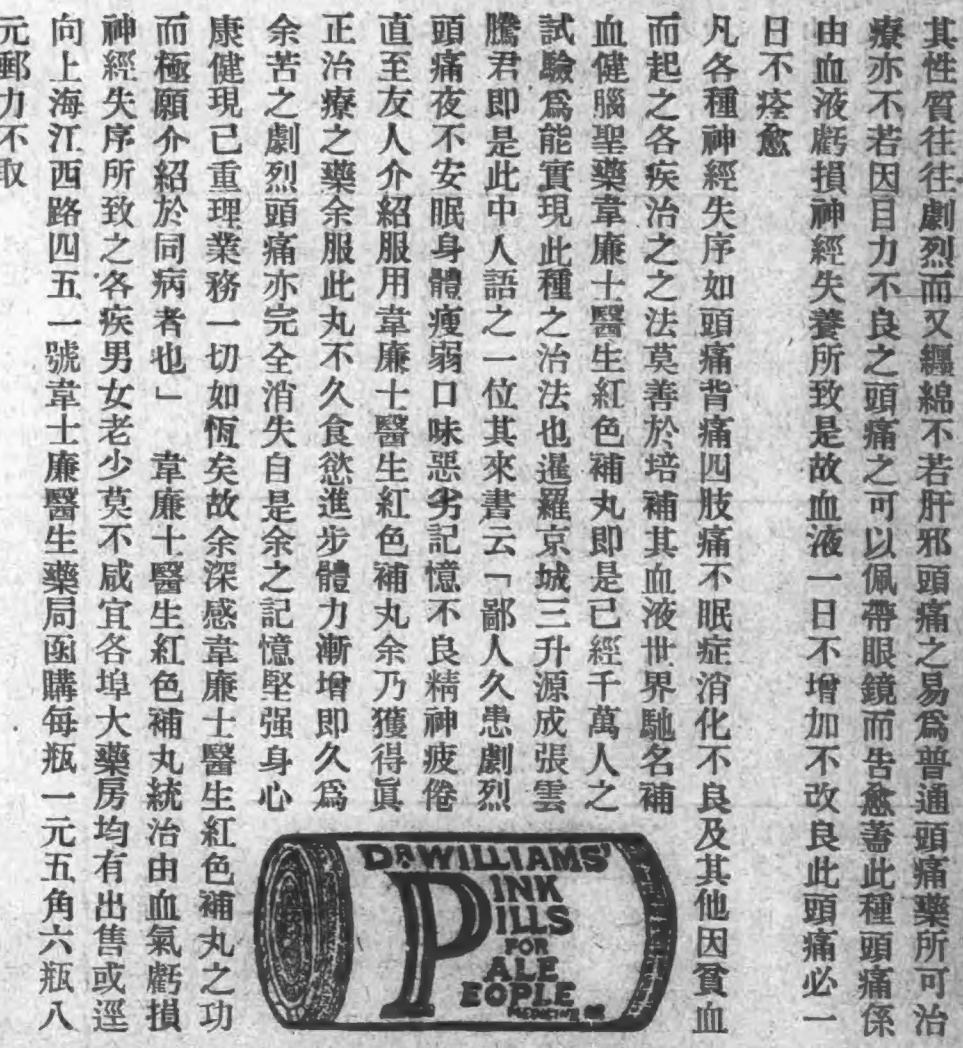 其性質往往劇烈而又纏綿不若肝邪頭痛之易爲普通頭痛藥所可治
療亦不若因目力不良之頭痛之可以佩帶眼鏡而告愈蓋此種頭痛係
由血液虧損神經失養所致是故血液一日不增加不改良此頭痛必一
日不痊愈
凡各種神經失序如頭痛背痛四肢痛不眠症消化不良及其他因貧血
而起之各疾治之之法莫善於培補其血液世界馳名補
血健腦聖藥韋廉士醫生紅色補丸即是已經千萬人之
試驗爲能實現此種之治法也暹羅京城三升源成張雲
騰君即是此中人語之一位其來書云「鄙人久患劇烈
頭痛夜不安眠身體瘦弱口味惡劣記憶不良精神疲倦
直至友人介紹服用韋廉士醫生紅色補丸余乃獲得眞
正治療之藥余服此丸不久食慾進步體力漸增即久爲
余苦之劇烈頭痛亦完全消失自是余之記憶堅强身心
康健現已重理業務一切如恆矣故余深感韋廉士醫生紅色補丸之功
而極願介紹於同病者也」 韋廉士醫生紅色補丸統治由血氣虧損
神經失序所致之各疾男女老少莫不咸宜各埠大藥房均有出售或逕
向上海江西路四五一號韋士廉醫生藥局函購每瓶一元五角六瓶八
元郵力不取
DR WILLIAMS'
PINK
PILLS
FOR
PALE
PEOPLE
MEDICINE